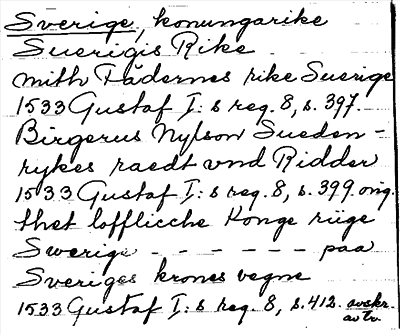 Sverige, konungarike
Suerigis Rike
mith Fädernes rike Suerige
1533 Gustaf I:s reg. 8, s. 397.
Birgerus Nylson Sueden-
rykes raedt vnd Ridder
1533 Gustaf I:s reg. 8, s. 399. orig.
thet lofflicche Konge riige
Swerige - - - - - - paa
Sveriges krones vegne
1533 Gustaf I:s reg. 8, s. 412. avskr.
av tr.